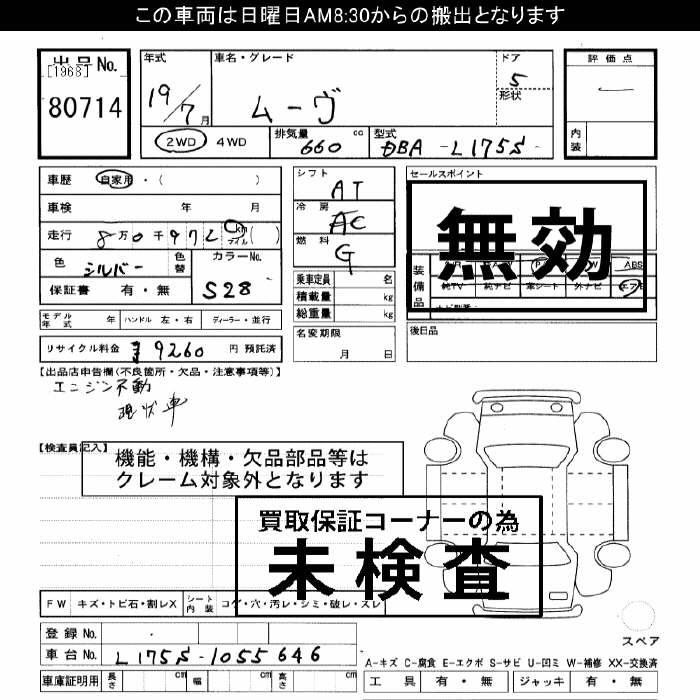 この車両は日曜日AM8:30からの搬出となります
出品No.
[1968]
80714
年式
19/7月
車名・グレード
ムーヴ
ドア
5
形状
評価点
内装
2WD 4WD
排気量
660 cc
型式
DBA-L175S-
車歴 自家用・( )
車検 年 月
走行 8万0千972 km マイル ( )
色 シルバー 色替
カラーNo.
S28
保証書 有・無
シフト
AT
冷房
AC
燃料
G
乗車定員 名
積載量 kg
総重量 kg
名変期限
月 日
セールスポイント
無効
装備品
ABS
純TV 純ナビ 革シート 外ナビ エアB
後日品
モデル年式 年 ハンドル 左・右 ディーラー・並行
リサイクル料金 ¥9260 円 預託済
【出品店申告欄(不良箇所・欠品・注意事項等)】
エンジン不動
現状車
【検査員記入】
機能・機構・欠品部品等は
クレーム対象外となります
買取保証コーナーの為
未検査
FW キズ・トビ石・割レX シート内装 コゲ・穴・汚レ・シミ・破レ・スレ
登録No.
車台No. L175S-1055646
車庫証明用 長さ cm 幅 cm 高さ cm
スペア
A-キズ C-腐食 E-エクボ S-サビ U-凹ミ W-補修 XX-交換済
工具 有・無 ジャッキ 有・無